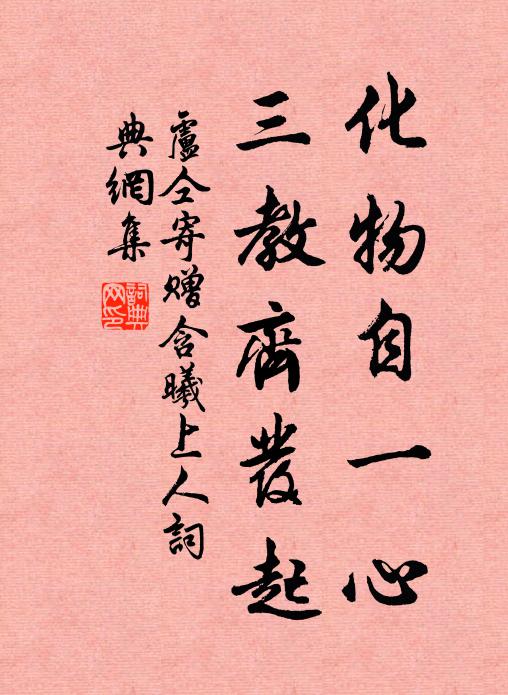 化物自一心
三教齊發起
盧仝寄贈含曦上人詞
典網集
詞典
网印